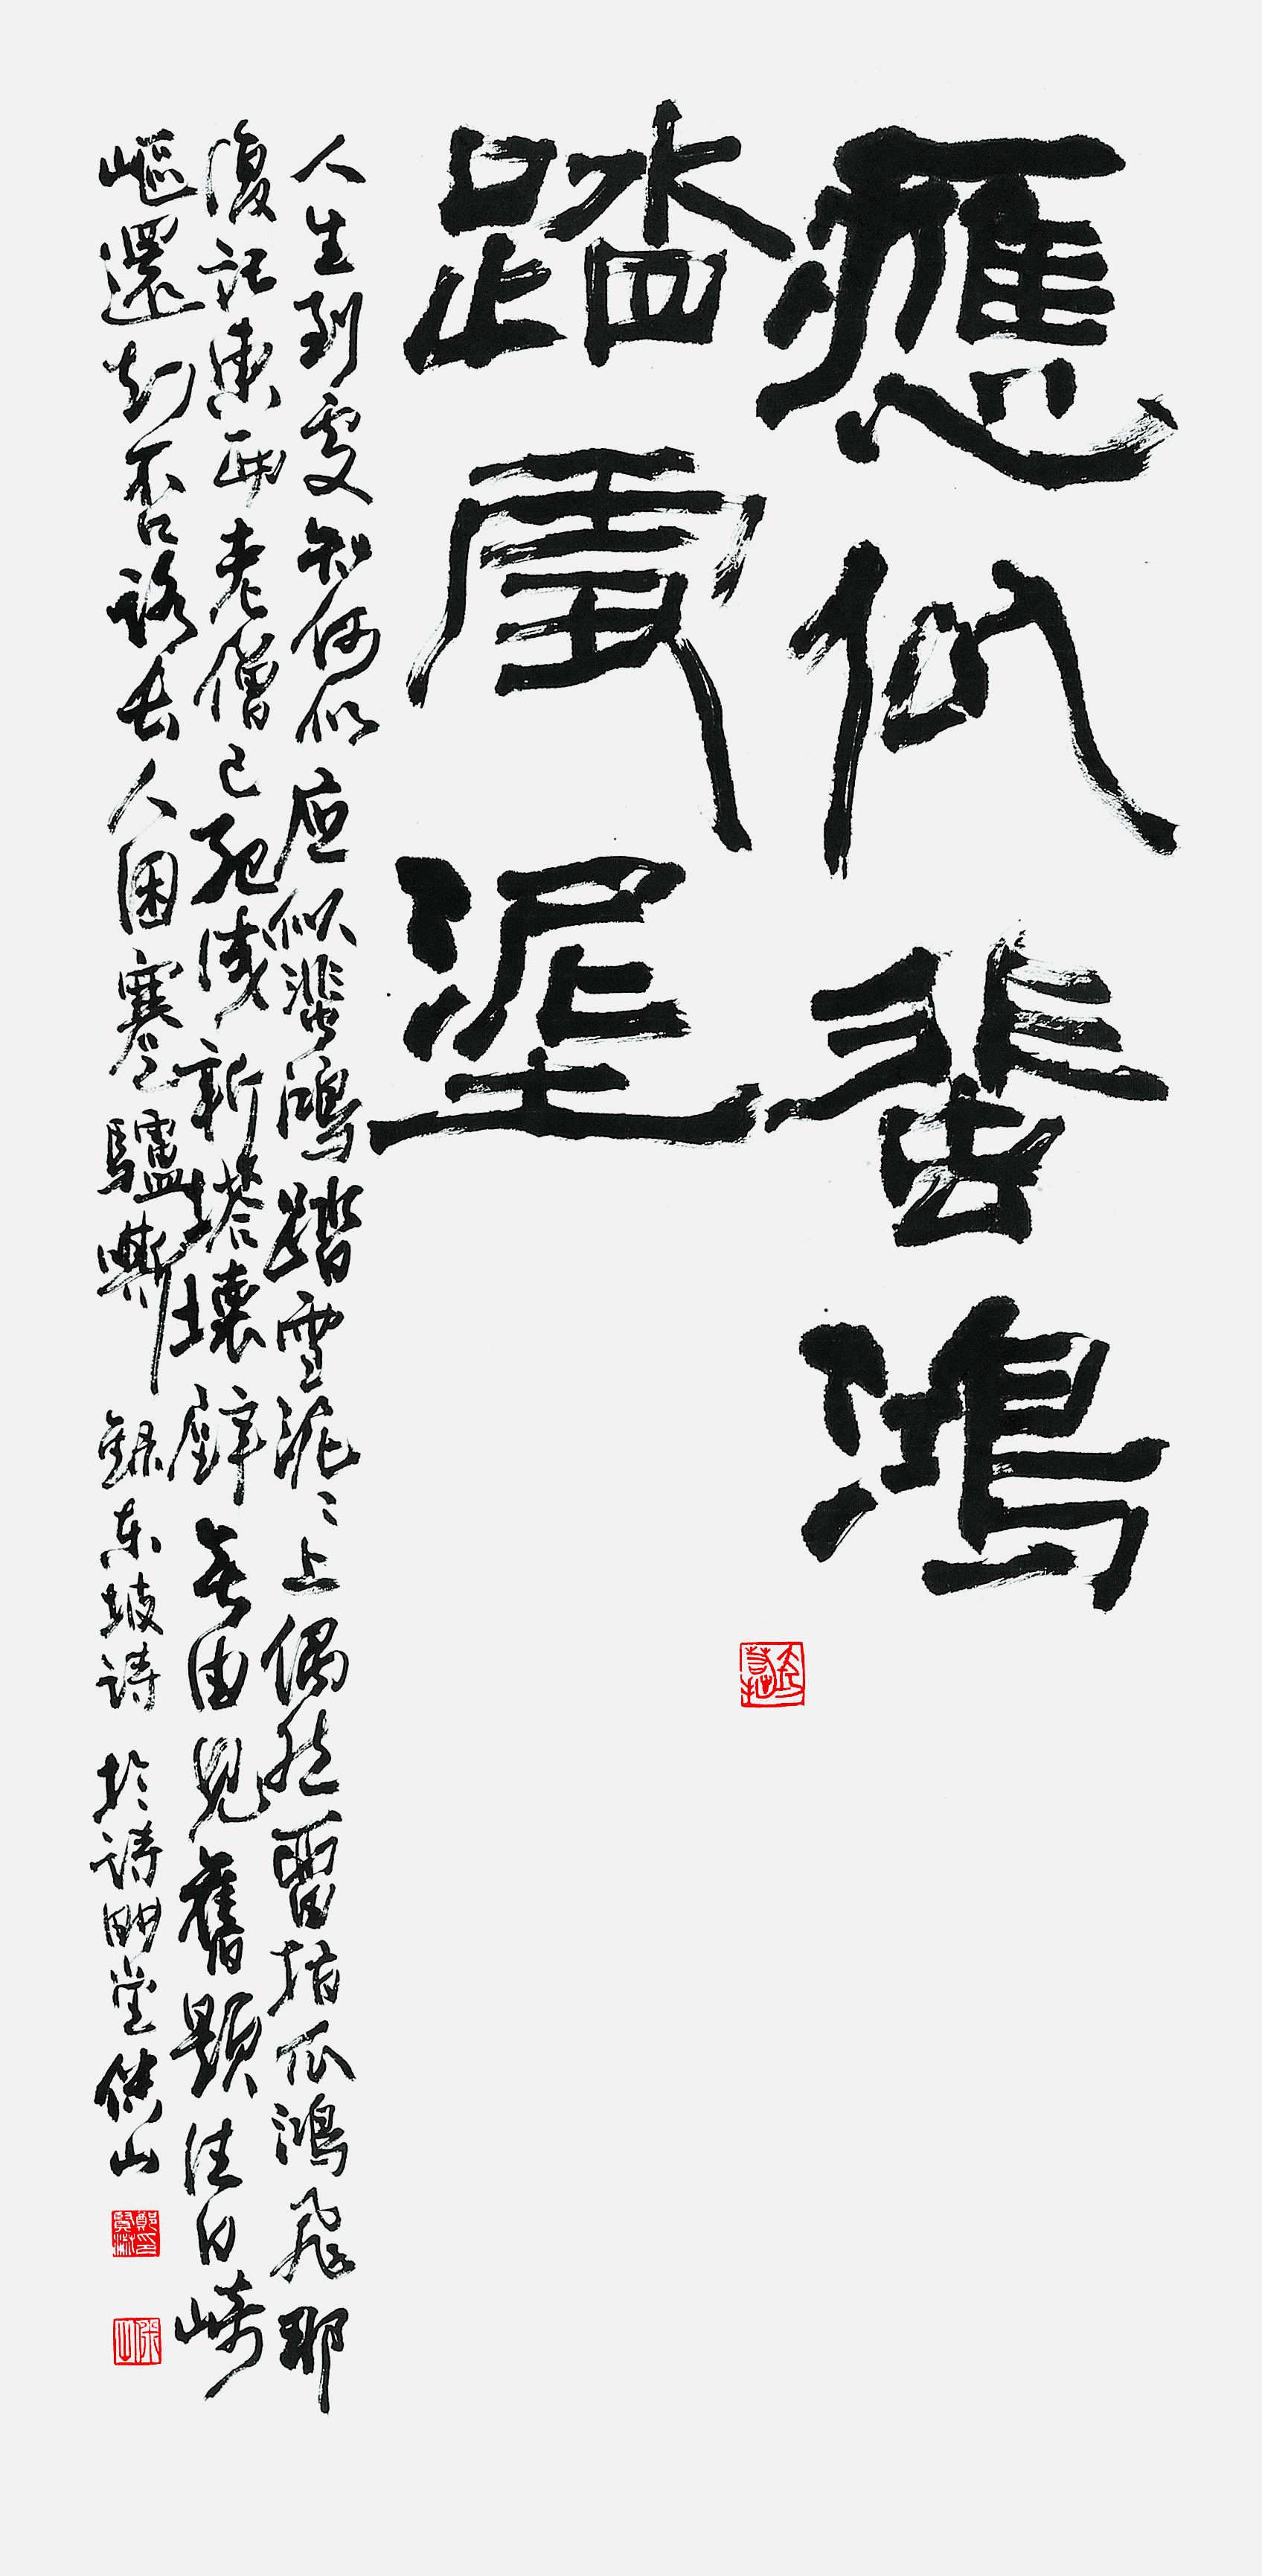 應似蜚鴻
踏雪泥
人生到處知何似應似蜚鴻踏雪泥〻上偶然留指爪鴻飛那
復記東西老僧已死成新塔壞壁無由見舊題往日崎
嶇還知否路長人困蹇驢嘶 錄東坡詩 於詩明堂俠山